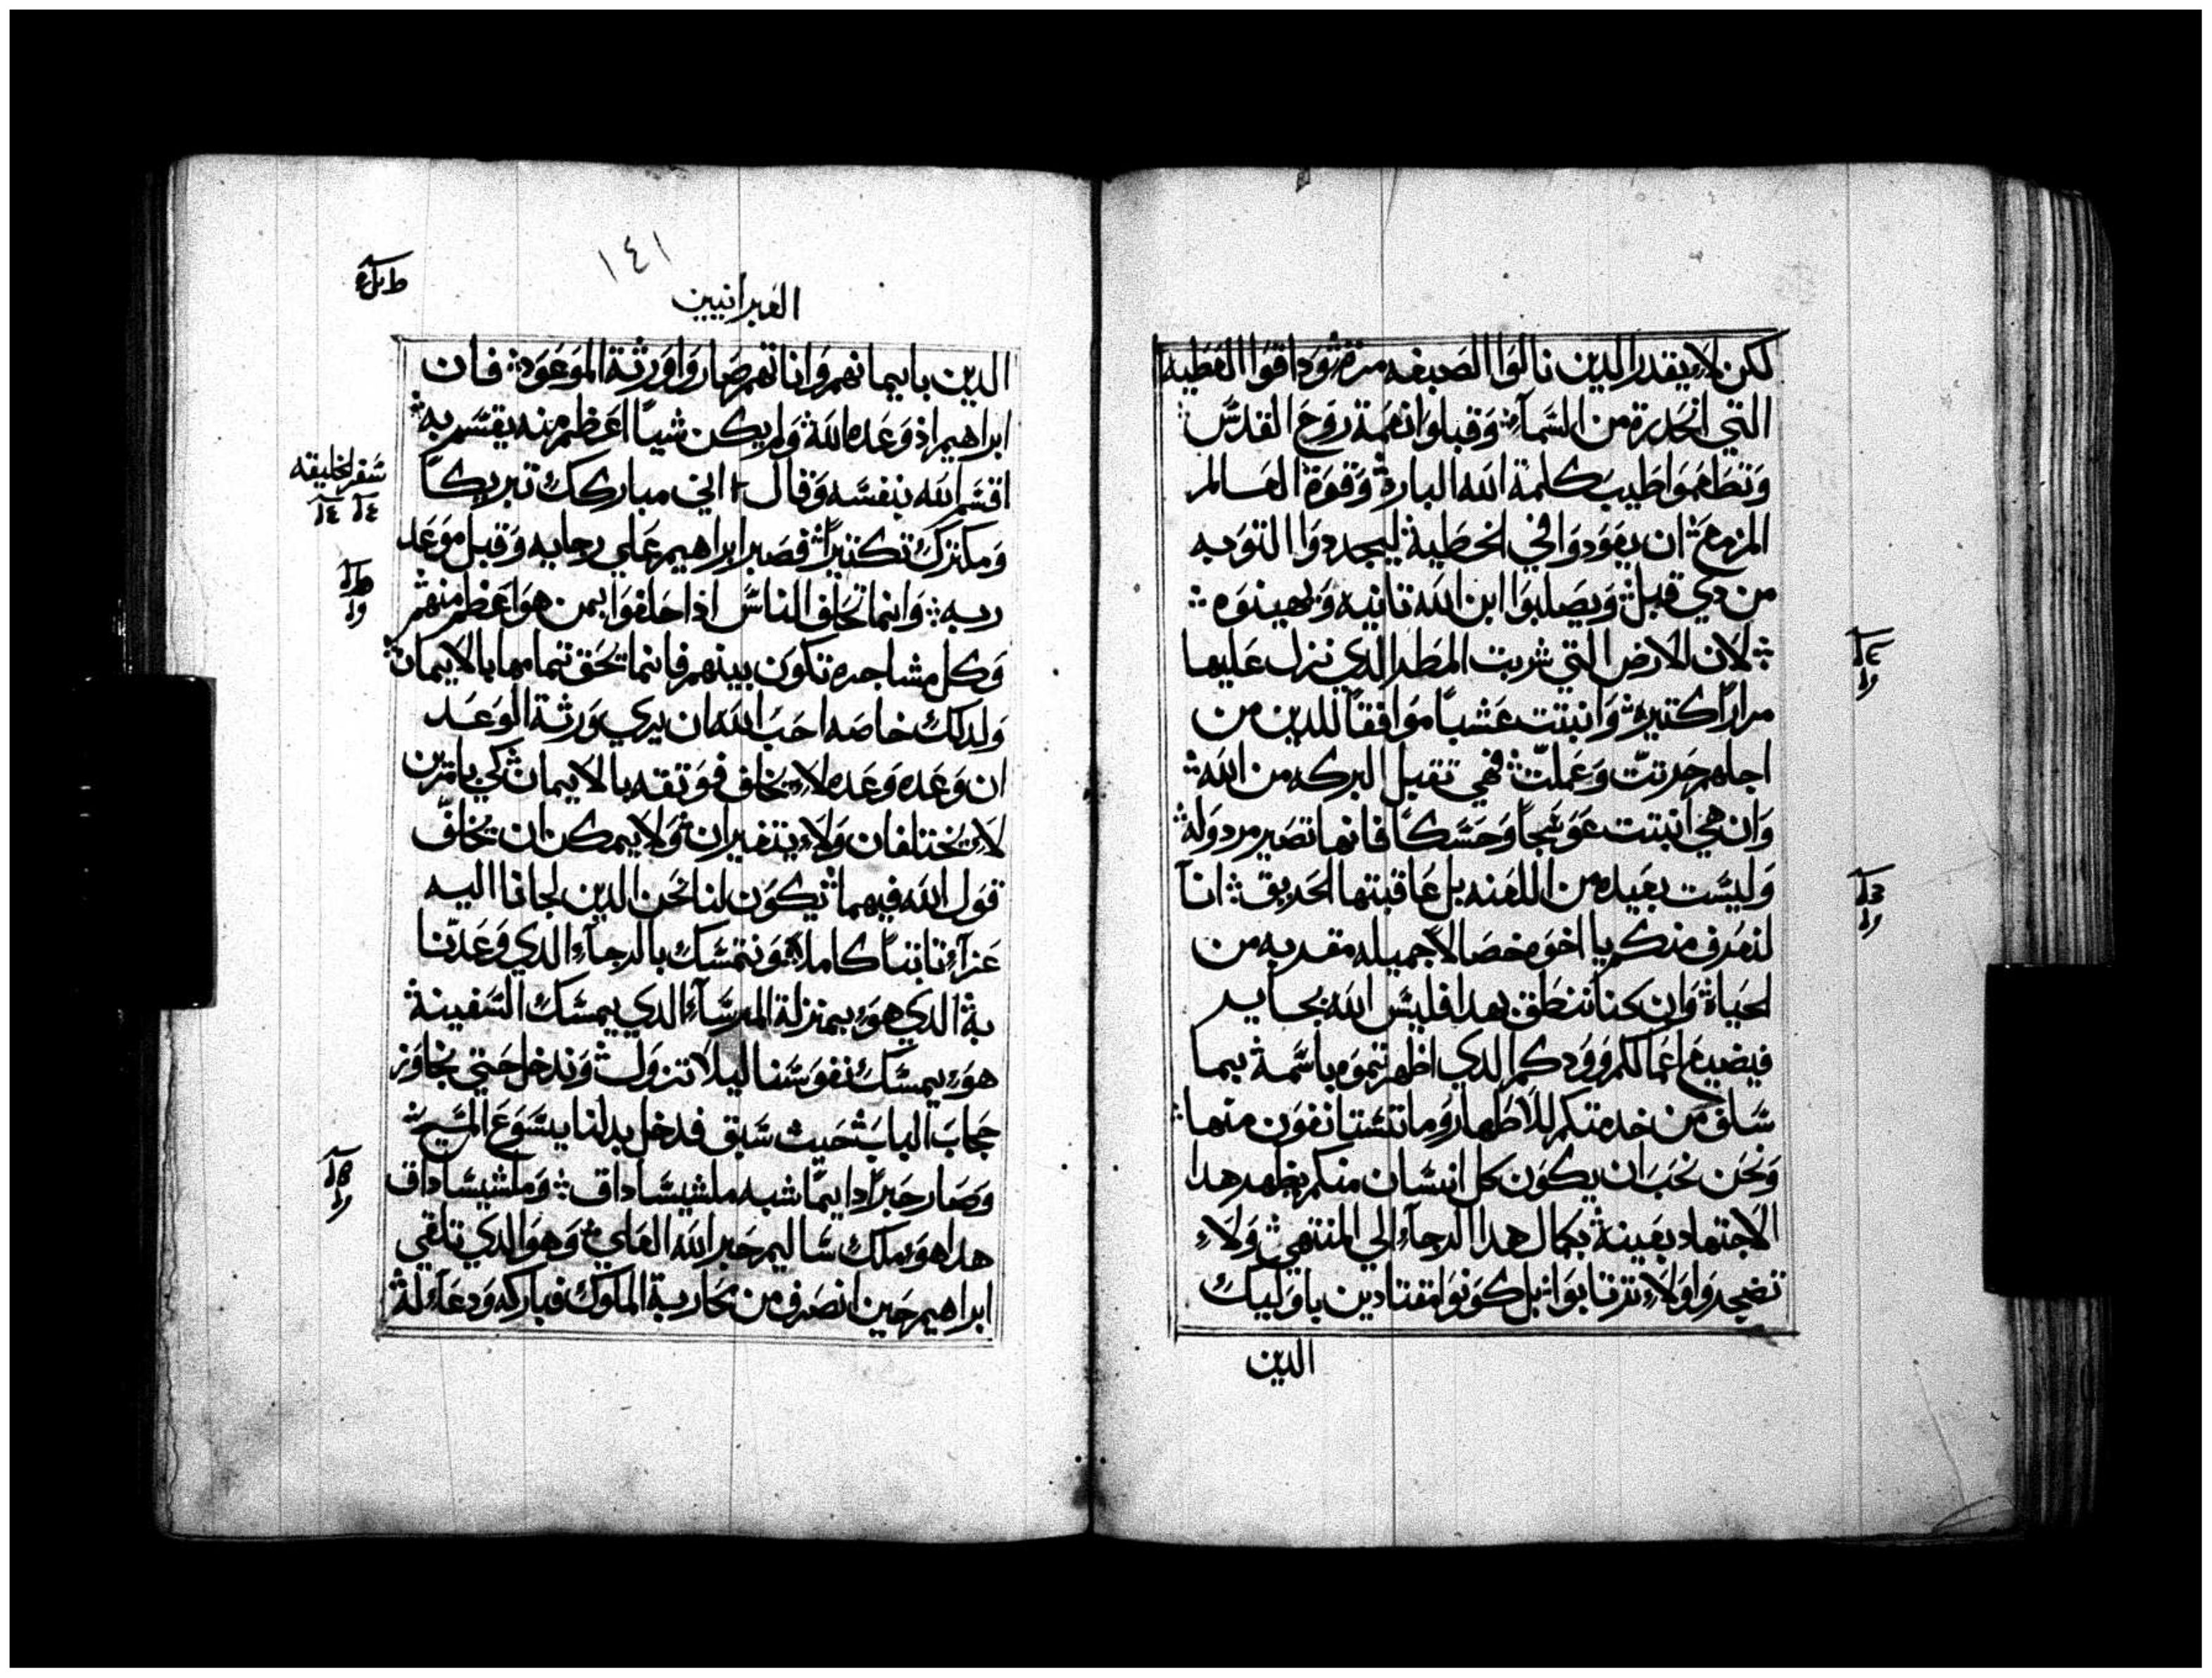 لكن لا يقدر الدين نالوا الصبغه مرة وداقوا العطيه
التي انحدرة من السماء وقبلوا نعمة روح القدس
وتطعموا طيب كلمة الله البارة وقوة العالم
المزمع ان يعودوا في الخطية ليجددوا التوبه
من دي قبل ويصلبوا ابن الله تانيه ويهينوه
لان الارض التي شربت المطر الدي نزل عليها
مرارا كتيرة وانبتت عشبا موافقا للدين من
اجلهم حرتت وعملت فهي تقبل البركه من الله
وان هي انبتت عوسجا وحسكا فانها تصير مردوله
وليست بعيده من اللعنه بل عاقبتها الحريق انا
لنعرف منكم يا اخوه خصالا جميله مقربه من
الحياة وان كنا ننطق بهدا فليس الله بجاير
فيضيع اعمالكم وودكم الدي اظهرتموه باسمة بيما
سلف من خدمتكم للاطهار وما تستانفون منها
ونحن نحب ان يكون كل انسان منكم يظهر هدا
الاجتهاد بعينة بكمال هدا الرجاء الي المنتهي ولا
تضجروا ولا ترتابوا بل كونوا مقتادين باوليك
الدين
١٤١
العبرانيين
الدين بايمانهم واناتهم صاروا ورثة الموعود فان
ابراهيم اذ وعده الله ولم يكن شيا اعظم منه يقسم به
اقسم الله بنفسه وقال اني مباركك تبريكا
ومكترك تكتيرا فصبر ابراهيم علي رجايه وقبل موعد
ربه وانما تحلف الناس اذا حلفوا بمن هو اعظم منهم
وكل مشاجره تكون بينهم فانما تحق تمامها بالايمان
ولدلك خاصه احب الله ان يري ورثة الوعد
ان وعده وعده لا يخلف فوتقه بالايمان كي بامرين
لا يختلفان ولا يتغيران ولا يمكن ان يخلف
قول الله فيهما تكون لنا نحن الدين لجانا اليه
عزاء تابتا كاملا ونتمسك بالرجاء الدي وعدنا
بة الدي هو بمنزلة المرساء الدي يمسك السفينة
هو يمسك نفوسنا ليلا تزول وندخل حتي نجاوز
حجاب الباب حيث سبق فدخل بدلنا يسوع المسيح
وصار حبرا دايما شبه ملشيساداق وملشيساداق
هدا هو ملك ساليم حبر الله العلي وهو الدي تلقي
ابراهيم حين انصرف من محاربة الملوك فباركه ودعا له
سفر الخليقه